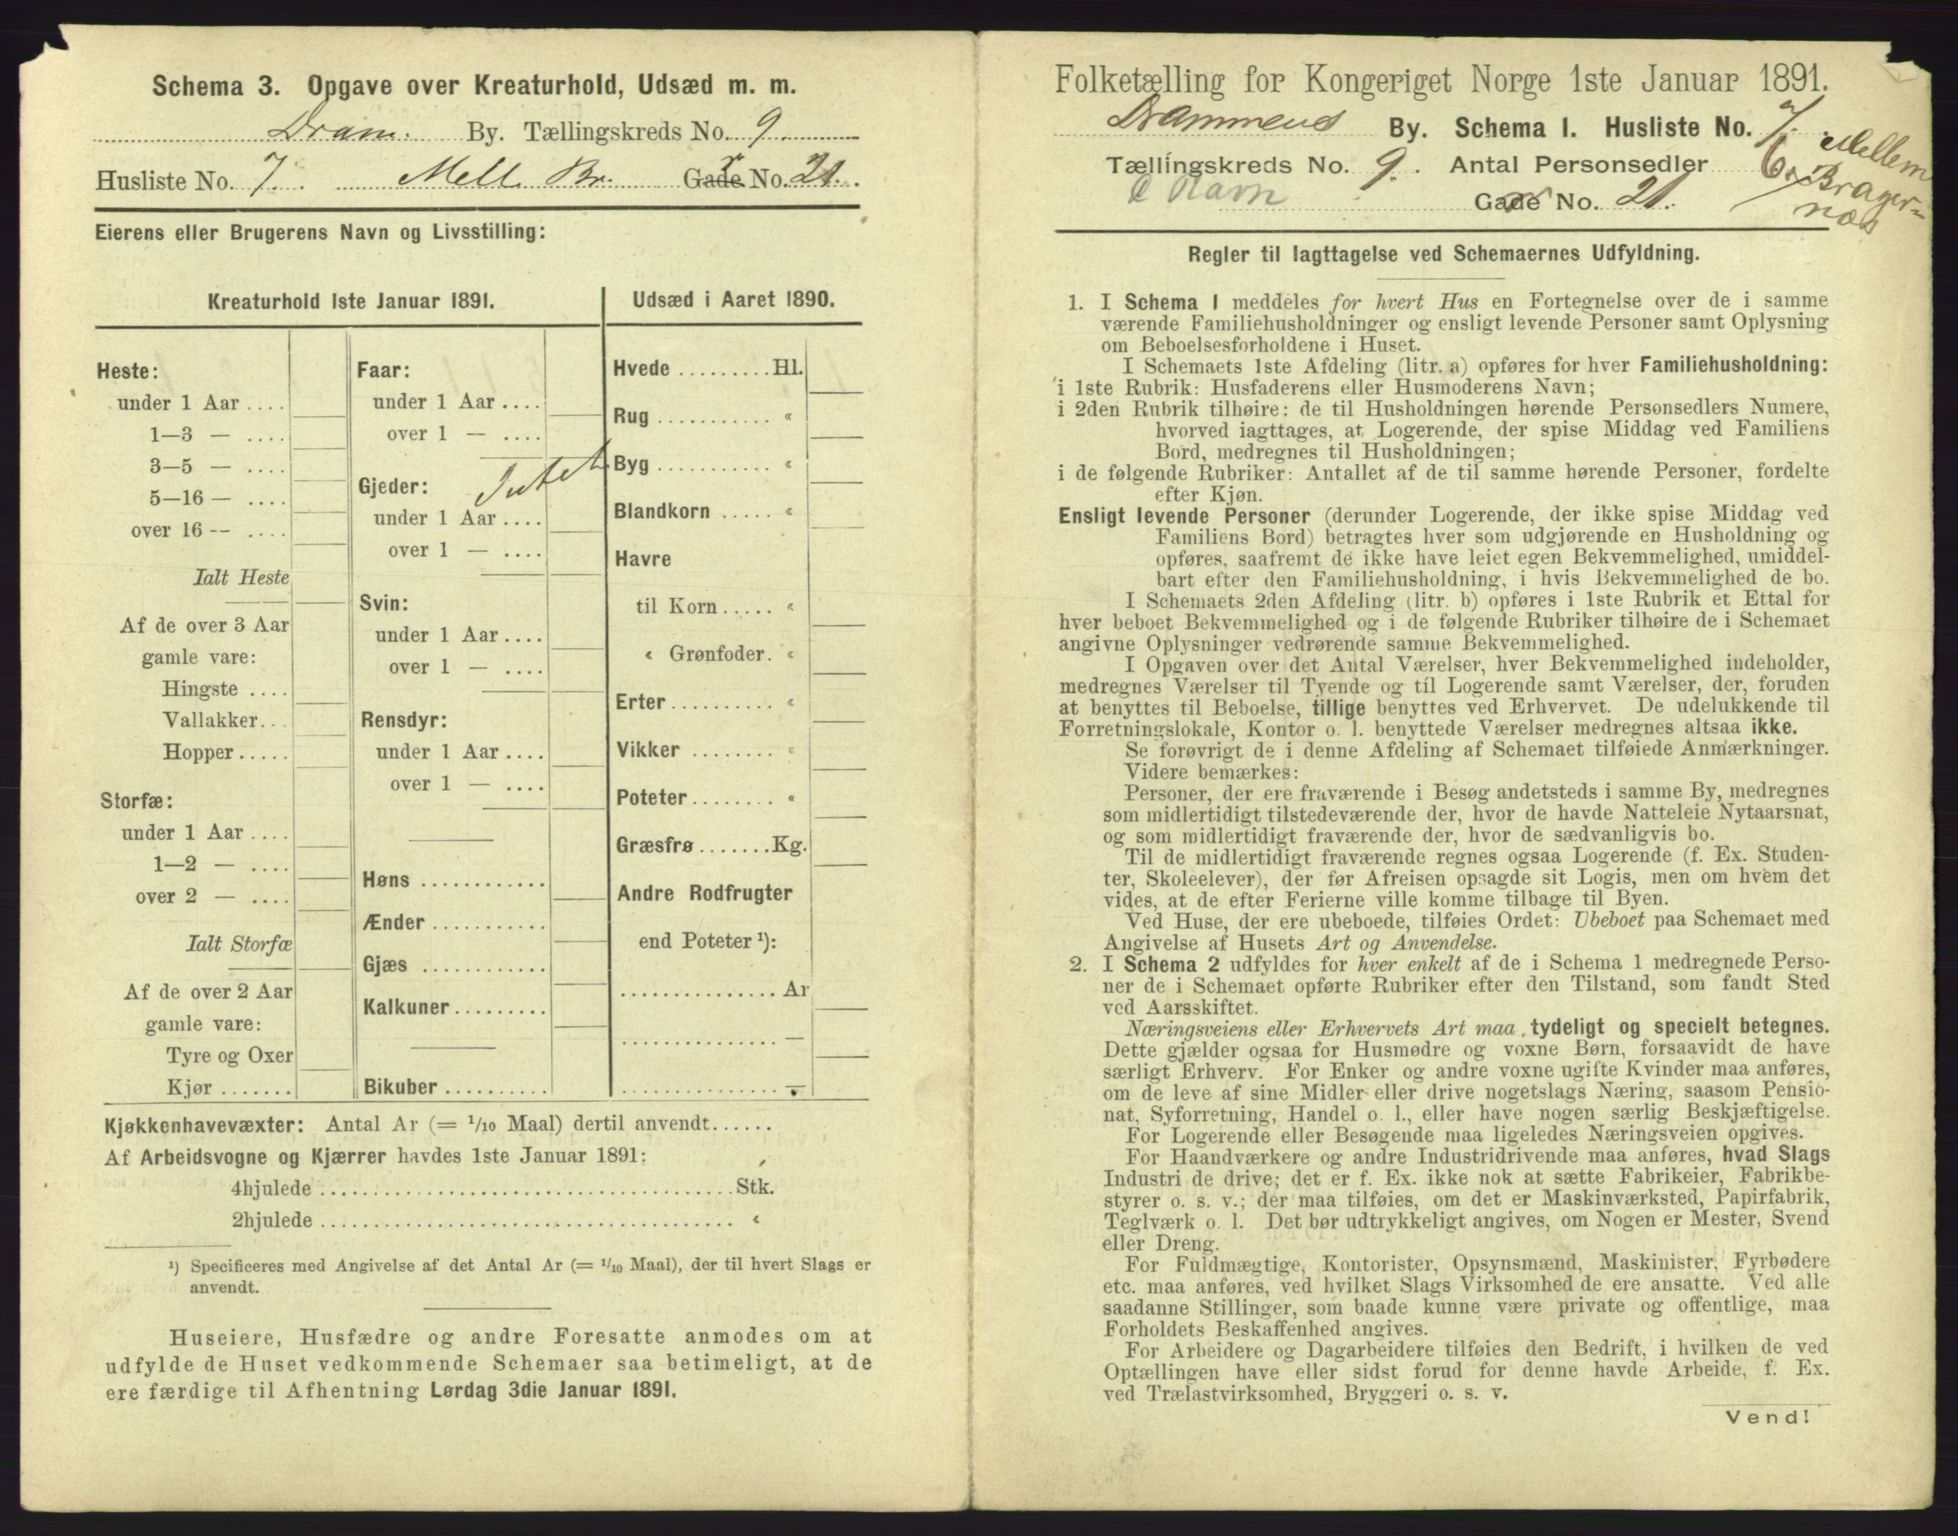 Schema 3. Opgave over Kreaturhold, Udsæd m. m.
Dram. By. Tællingskreds No. 9.
Husliste No. 7. Mell. Br. Gade No. 21.
Eierens eller Brugerens Navn og Livsstilling:
Kreaturhold 1ste Januar 1891.
Heste:
under 1 Aar ....
1—3 — ....
3—5 — ....
5—16 — ....
over 16 -- ....
Ialt Heste
Af de over 3 Aar
gamle vare:
Hingste ....
Vallakker...
Hopper.....
Storfæ:
under 1 Aar ....
1—2 — ....
over 2 — ....
Ialt Storfæ
Af de over 2 Aar
gamle vare:
Tyre og Oxer
Kjør .......
Faar:
under 1 Aar ....
over 1 — ....
Gjeder: Intet
under 1 Aar ....
over 1 — ....
Svin:
under 1 Aar ....
over 1 — ....
Rensdyr:
under 1 Aar ....
over 1 — ....
Høns ............
Ænder ...........
Gjæs ............
Kalkuner.........
Bikuber ..........
Udsæd i Aaret 1890.
Hvede .........Hl.
Rug ........... «
Byg ........... «
Blandkorn ..... «
Havre
til Korn..... «
« Grønfoder. «
Erter.......... «
Vikker ........ «
Poteter........ «
Græsfrø.......Kg.
Andre Rodfrugter
end Poteter ¹):
............... Ar
............... —
............... —
Kjøkkenhavevæxter: Antal Ar (= 1/10 Maal) dertil anvendt......
Af Arbeidsvogne og Kjærrer havdes 1ste Januar 1891:
4hjulede ......................................Stk.
2hjulede ...................................... «
¹) Specificeres med Angivelse af det Antal Ar (= 1/10 Maal), der til hvert Slags er
anvendt.
Huseiere, Husfædre og andre Foresatte anmodes om at
udfylde de Huset vedkommende Schemaer saa betimeligt, at de
ere færdige til Afhentning Lørdag 3die Januar 1891.
Folketælling for Kongeriget Norge 1ste Januar 1891.
Drammens By. Schema 1. Husliste No. 7.
Tællingskreds No. 9. Antal Personsedler 6.
Mellem
Brager=
næs
Havn Gade No. 21.
Regler til Iagttagelse ved Schemaernes Udfyldning.
1. I Schema 1 meddeles for hvert Hus en Fortegnelse over de i samme
værende Familiehusholdninger og ensligt levende Personer samt Oplysning
om Beboelsesforholdene i Huset.
I Schemaets 1ste Afdeling (litr. a) opføres for hver Familiehusholdning:
i 1ste Rubrik: Husfaderens eller Husmoderens Navn;
i 2den Rubrik tilhøire: de til Husholdningen hørende Personsedlers Numere,
hvorved iagttages, at Logerende, der spise Middag ved Familiens
Bord, medregnes til Husholdningen;
i de følgende Rubriker: Antallet af de til samme hørende Personer, fordelte
efter Kjøn.
Ensligt levende Personer (derunder Logerende, der ikke spise Middag ved
Familiens Bord) betragtes hver som udgjørende en Husholdning og
opføres, saafremt de ikke have leiet egen Bekvemmelighed, umiddel-
bart efter den Familiehusholdning, i hvis Bekvemmelighed de bo.
I Schemaets 2den Afdeling (litr. b) opføres i 1ste Rubrik et Ettal for
hver beboet Bekvemmelighed og i de følgende Rubriker tilhøire de i Schemaet
angivne Oplysninger vedrørende samme Bekvemmelighed.
I Opgaven over det Antal Værelser, hver Bekvemmelighed indeholder,
medregnes Værelser til Tyende og til Logerende samt Værelser, der, foruden
at benyttes til Beboelse, tillige benyttes ved Erhvervet. De udelukkende til
Forretningslokale, Kontor o. l. benyttede Værelser medregnes altsaa ikke.
Se forøvrigt de i denne Afdeling af Schemaet tilføiede Anmærkninger.
Videre bemærkes:
Personer, der ere fraværende i Besøg andetsteds i samme By, medregnes
som midlertidigt tilstedeværende der, hvor de havde Natteleie Nytaarsnat,
og som midlertidigt fraværende der, hvor de sædvanligvis bo.
Til de midlertidigt fraværende regnes ogsaa Logerende (f. Ex. Studen-
ter, Skoleelever), der før Afreisen opsagde sit Logis, men om hvem det
vides, at de efter Ferierne ville komme tilbage til Byen.
Ved Huse, der ere ubeboede, tilføies Ordet: Ubeboet paa Schemaet med
Angivelse af Husets Art og Anvendelse.
2. I Schema 2 udfyldes for hver enkelt af de i Schema 1 medregnede Perso-
ner de i Schemaet opførte Rubriker efter den Tilstand, som fandt Sted
ved Aarsskiftet.
Næringsveiens eller Erhvervets Art maa tydeligt og specielt betegnes.
Dette gjælder ogsaa for Husmødre og voxne Børn, forsaavidt de have
særligt Erhverv. For Enker og andre voxne ugifte Kvinder maa anføres,
om de leve af sine Midler eller drive nogetslags Næring, saasom Pensio-
nat, Syforretning, Handel o. l., eller have nogen særlig Beskjæftigelse.
For Logerende eller Besøgende maa ligeledes Næringsveien opgives.
For Haandværkere og andre Industridrivende maa anføres, hvad Slags
Industri de drive; det er f. Ex. ikke nok at sætte Fabrikeier, Fabrikbe-
styrer o. s. v.; der maa tilføies, om det er Maskinværksted, Papirfabrik,
Teglværk o. l. Det bør udtrykkeligt angives, om Nogen er Mester, Svend
eller Dreng.
For Fuldmægtige, Kontorister, Opsynsmænd, Maskinister, Fyrbødere
etc. maa anføres, ved hvilket Slags Virksomhed de ere ansatte. Ved alle
saadanne Stillinger, som baade kunne være private og offentlige, maa
Forholdets Beskaffenhed angives.
For Arbeidere og Dagarbeidere tilføies den Bedrift, i hvilken de ved
Optællingen have eller sidst forud for denne havde Arbeide, f. Ex.
ved Trælastvirksomhed, Bryggeri o. s. v.
Vend!